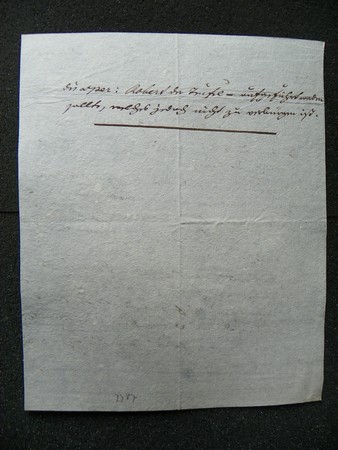 die Oper: Robert der Teufel – aufgeführt werden
sollte, welches jedoch nicht zu verbürgen ist.